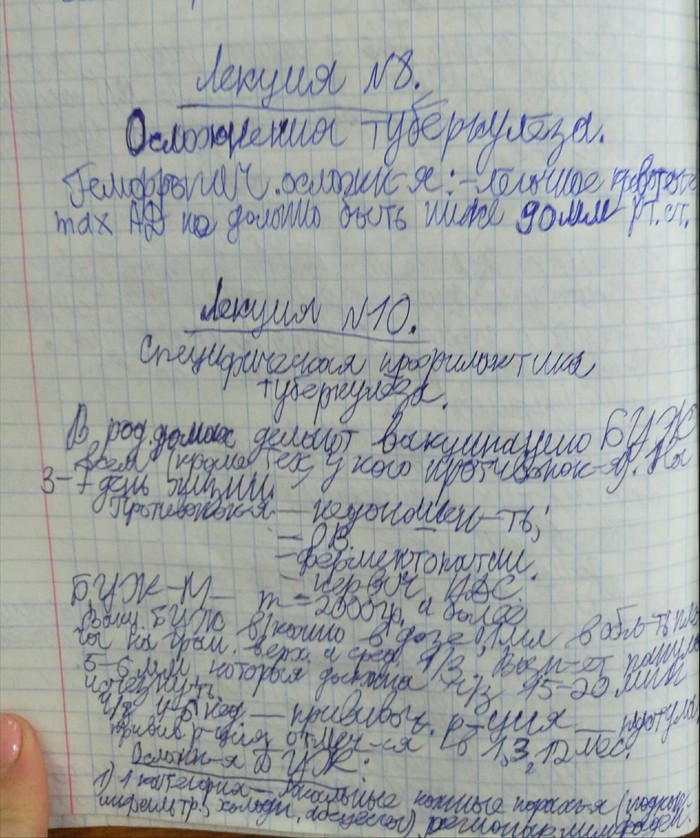 Лекция №8.
Осложнения туберкулёза.
Геморрагич. осложн-я: - лёгочное кровотече
max АД не должно быть ниже 90мм рт.ст.
Лекция №10.
Специфическая профилактика
туберкулёза.
В род.домах делают вакцинацию БЦЖ
всем (кроме тех, у кого противопок-я). На
3-7 день жизни.
Противопок-я — недоношен-ть;
- ферментопатии.
- первич. ИДС.
БЦЖ-М — m = 2000гр. и более
Вакц. БЦЖ в/кожно в дозе 0,1мл в обл-ть пле
ча на гран. верх. и сред. 1/3. папула
5-6 мм, которая должна ч/з 15-20 мин
исчезнуть.
Ч/з 4-6 нед — прививоч. р-ция — пустула
р-ция отмеч-ся в 1, 3, 12 мес.
Осложн-я БЦЖ:
1) 1 категория — локальные кожные пораж-я (подкож
инфильтр., холодн. абсцессы), регионарные лимфаден